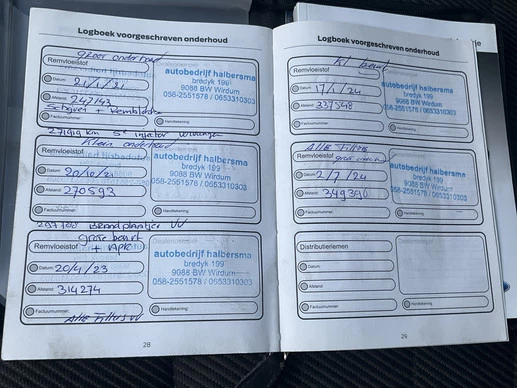 Logboek voorgeschreven onderhoud
groot onderhoud
Remvloeistof
Datum: 21/1/21
Afstand: 247143
Schijven + Remblokken
Factuurnummer:
Handtekening:
autobedrijf halbersma
bredyk 199
9088 BW Wirdum
058-2551578 / 0653310303
km 5e injector vervangen
Klein onderhoud
Remvloeistof
Datum: 20/10/21
Afstand: 270593
Factuurnummer:
Handtekening:
autobedrijf halbersma
bredyk 199
9088 BW Wirdum
058-2551578 / 0653310303
grote beurt
+ APK
Remvloeistof
Datum: 20/4/23
Afstand: 314274
Factuurnummer:
Alle Filters VV
Handtekening:
autobedrijf halbersma
bredyk 199
9088 BW Wirdum
058-2551578 / 0653310303
28
Logboek voorgeschreven onderhoud
kl beurt
Remvloeistof
Datum: 17/1/24
Afstand: 337548
Factuurnummer:
Handtekening:
autobedrijf halbersma
bredyk 199
9088 BW Wirdum
058-2551578 / 0653310303
Alle Filters
Remvloeistof
Datum: 2/7/24
Afstand: 349390
Factuurnummer:
Handtekening:
autobedrijf halbersma
bredyk 199
9088 BW Wirdum
058-2551578 / 0653310303
Distributieriemen
Datum:
Afstand:
Factuurnummer:
Handtekening:
29